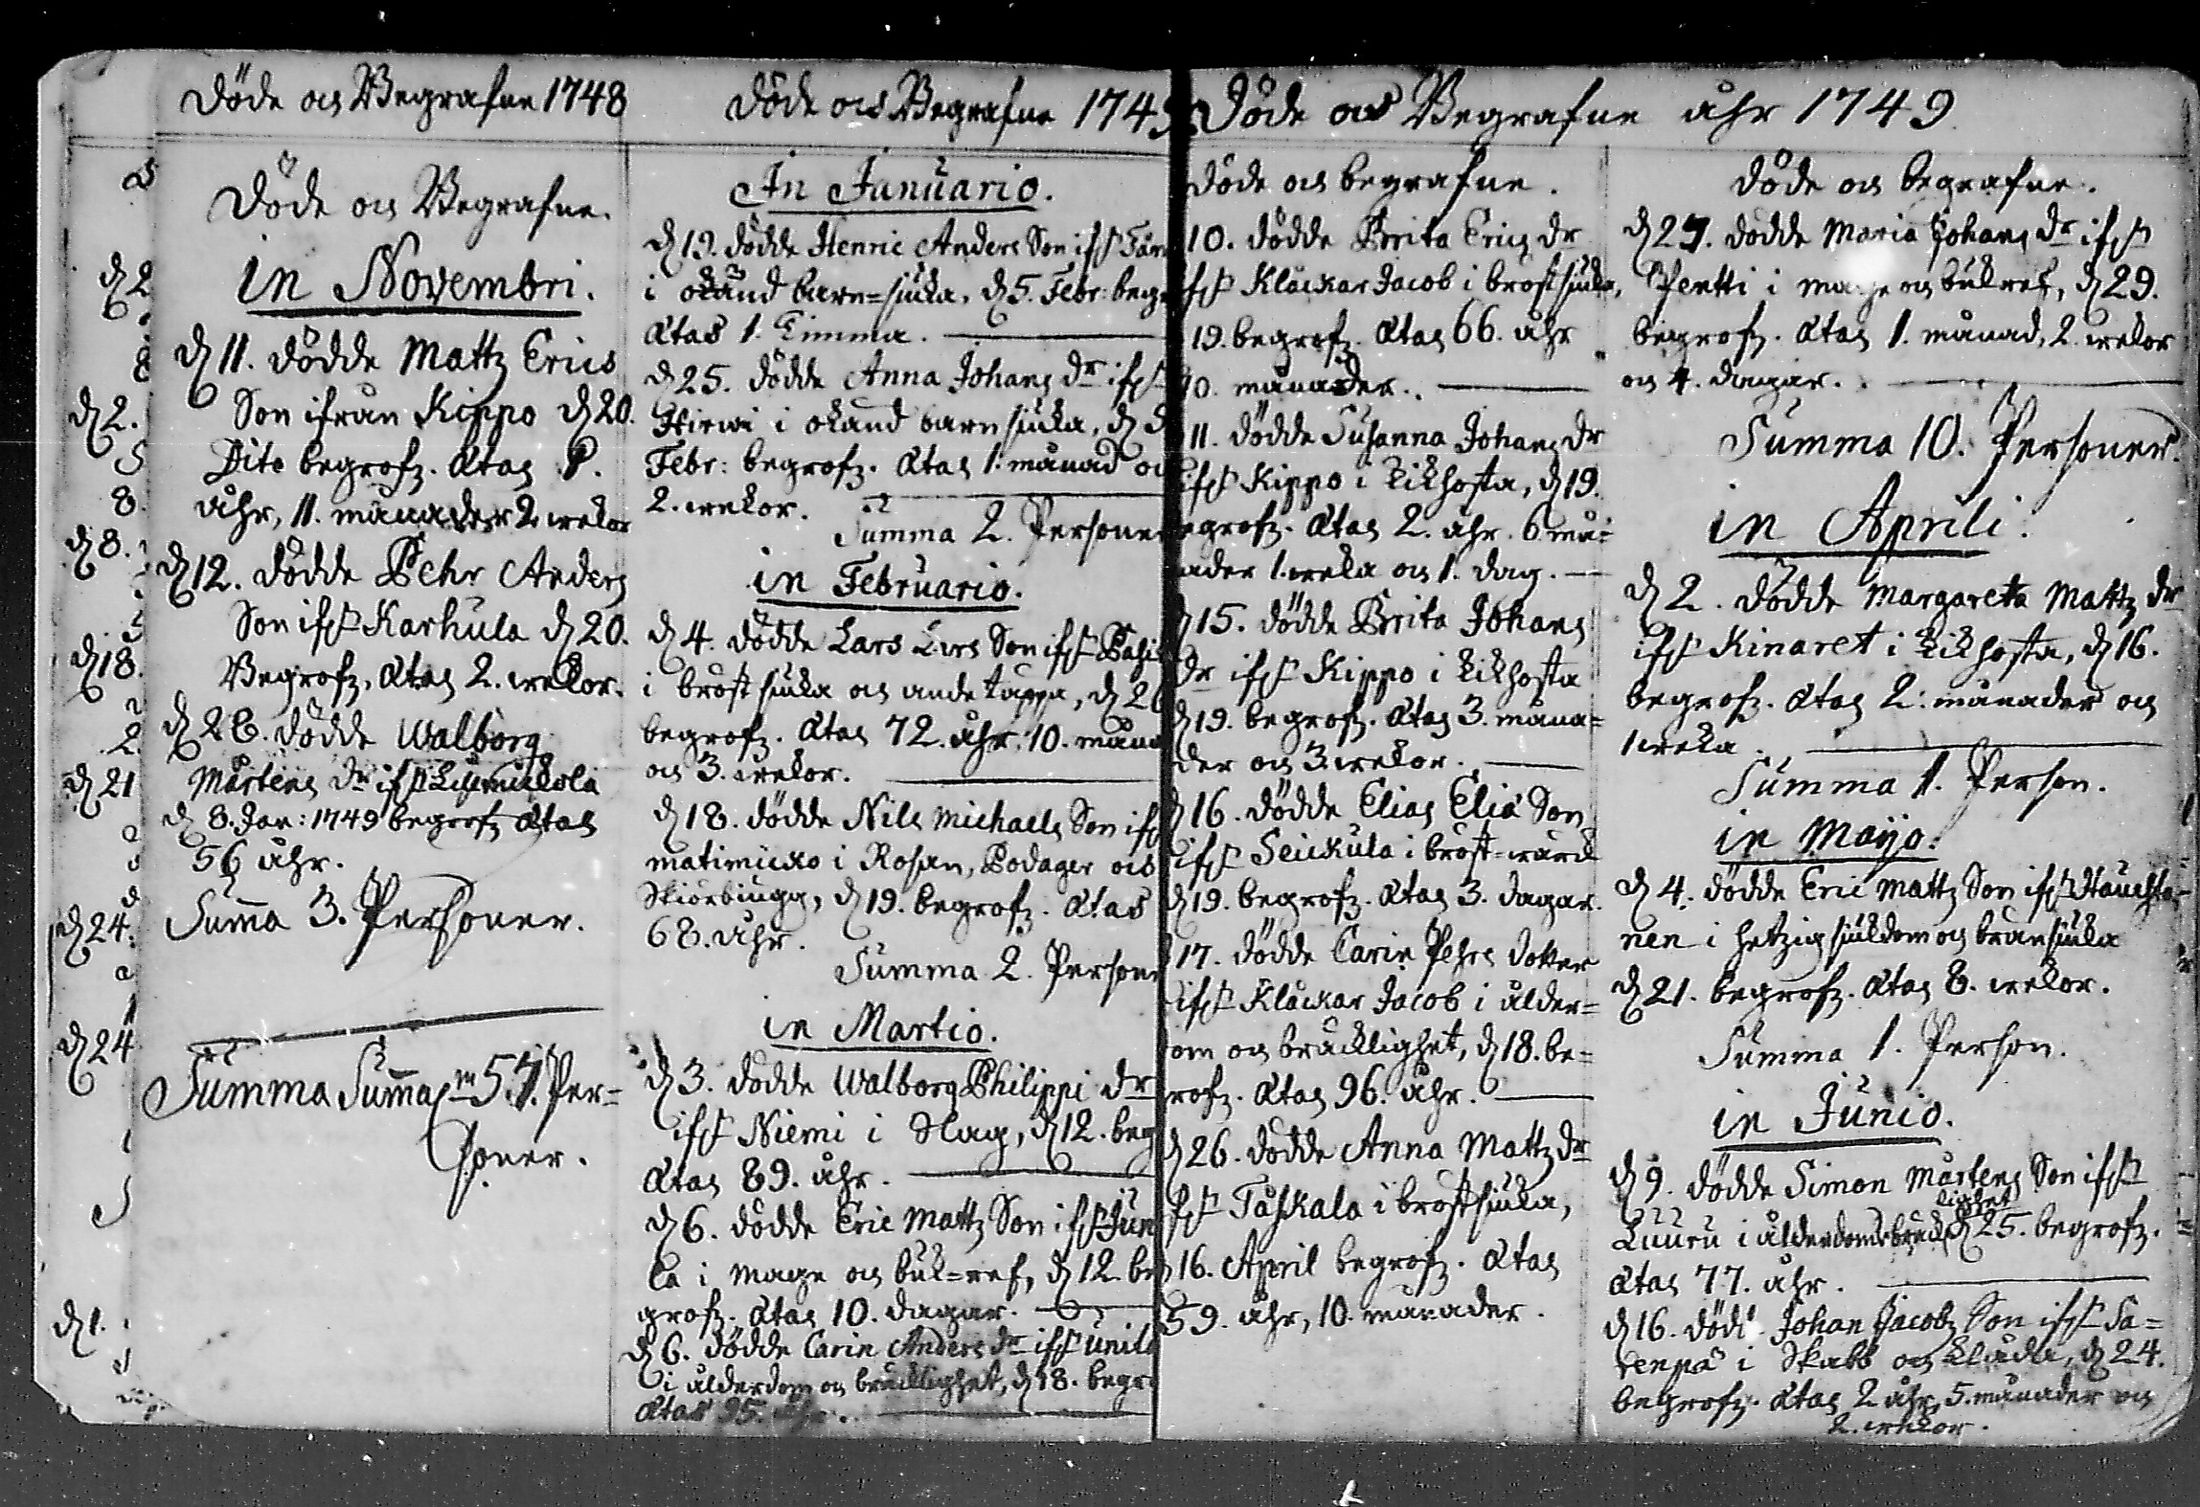 Döde och Begrafne 1748
Döde och Begrafne.
in Novembri.
d 11. dödde Mattz Erics
Son ifrån Kippo d 20.
Dito begrofz. Ætas
åhr, 11. månader 2 wekor
d 12. dödde Pehr Anders
Son ifr Karhula d 20.
Begrofz. Ætas 2. wekor.
dödde Walborg
Mårtens dr ifr
d 8. Jan: 1749 begrofz Ætas
56 åhr.
Suma 3. Personer.
Summa Sumarm 57. Per=
soner.
Döde och Begrafne 1749
In Januario.
d 19. dödde Henric Anders Son ifr
i okänd barn=siuka, d 5. Febr: begr
Ætas 1. Timma.
d 25. dödde Anna Johans dr ifr
Hirwi i okänd barnsiuka, d
Febr: begrofz. Ætas 1. månad och
2. wekor.
Summa 2. Persone
in Februario.
d 4. dödde Lars Lars Son ifr
i bröstsiuka och andetäppa, d 26
begrofz. Ætas 72. åhr. 10. måna
och 3. wekor.
d 18. dödde Nils Michaels Son ifr
Matimicko i Rosan, Podager och
Skiörbiugg, d 19. begrofz. Ætas
68. åhr.
Summa 2. Person
in Martio.
d 3. dödde Walborg Philippi dr
ifr Niemi i Slag, d 12. beg
Ætas 89. åhr.
d 6. dödde Eric Mattz Son ifr Jun
la i Mage och buk=ref, d 12. be
grofz. Ætas 10. dagar.
d 6. dödde Carin Anders dr ifr
i ålderdom och bräcklighet, d 18. begro
Ætas 95. åhr.
Döde och Begrafne åhr 1749
Döde och begrafne.
10. dödde Brita Erics dr
ifr Klåckar Jacob i bröstsiuka,
19. begrofz. Ætas 66. åhr
10. månader.
11. dödde Susanna Johans dr
ifr Kippo i kikhosta, d 19.
egrofz. Ætas 2. åhr. 6. må=
ader 1. weka och 1. dag.
d 15. dödde Brita Johans
dr ifr Kippo i kikhosta
d 19. begrofz. Ætas 3. måna=
der och 3. wekor.
d 16. dödde Elias Eliæ Son
ifr Seickula i bröst=wärck
d 19. begrofz. Ætas 3. dagar.
17. dödde Carin Pehrs dotter
ifr Klåckar Jacob i ålder=
om och bräcklighet, d 18. be=
rofz. Ætas 96. åhr.
d 26. dödde Anna Mattz dr
ifr Taskala i bröstsiuka,
16. April begrofz. Ætas
59. åhr, 10. månader.
Döde och begrafne.
d 27. dödde Maria Johans dr ifr
Pertti i mage och bukref, d 29.
begrofz. Ætas 1. månad, 2. wekor
och 4. dagar.
Summa 10. Personer.
in Aprili.
d 2. dödde Margareta Mattz dr
ifr Kinaret i kikhosta, d 16.
begrofz. Ætas 2. månader och
1 weka.
Summa 1. Person.
in Mayo.
d 4. dödde Eric Mattz Son ifr
nen i hetzig siukdom och bränsiuka
d 21. begrofz. Ætas 8. wekor.
Summa 1. Person.
in Junio.
d 9. dödde Simon Mårtens Son ifr
Luuru i ålderdoms bräcklighet d 25. begrofz.
Ætas 77. åhr.
d 16. död Johan Jacobz Son ifr Sa=
renpä i Skabb och Klåda, d 24.
begrofz. Ætas 2 åhr, 5. månader och
2. wekor.